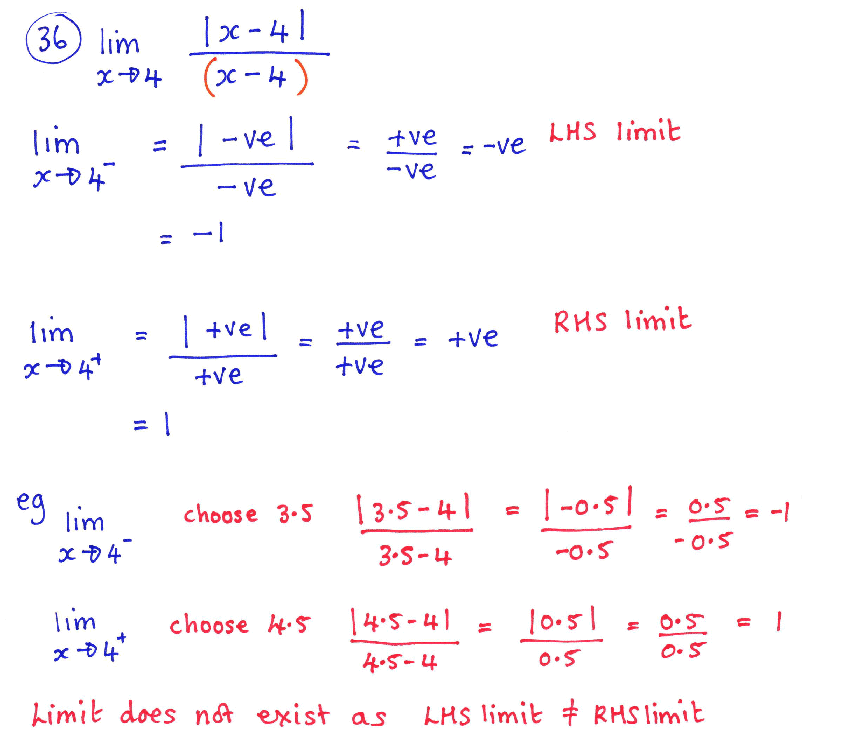 36 lim x→4 |x-4| / (x-4)
lim x→4⁻ = |-ve| / -ve = +ve / -ve = -ve LHS limit
= -1
lim x→4⁺ = |+ve| / +ve = +ve / +ve = +ve RHS limit
= 1
eg lim x→4⁻ choose 3·5 |3·5-4| / 3·5-4 = |-0·5| / -0·5 = 0·5 / -0·5 = -1
lim x→4⁺ choose 4·5 |4·5-4| / 4·5-4 = |0·5| / 0·5 = 0·5 / 0·5 = 1
Limit does not exist as LHS limit ≠ RHS limit